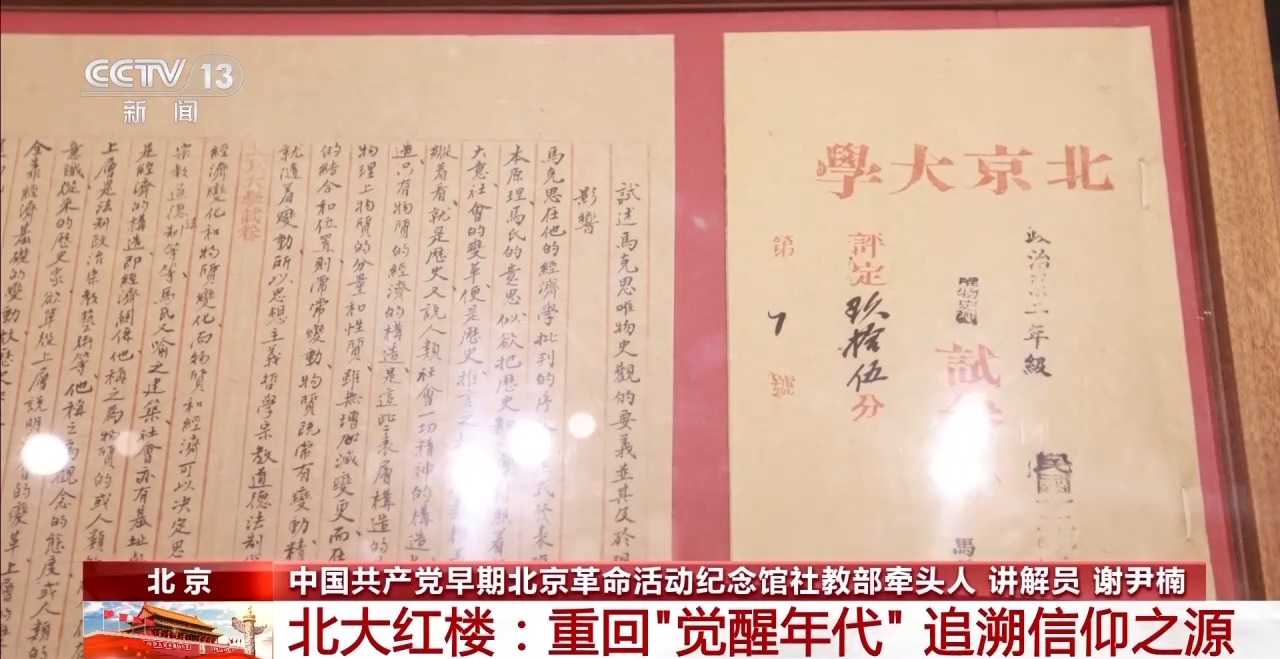 CCTV 13
新闻
北京大學
政治第一年級
唯物史觀
試
民國
馬
評定玖拾伍分
第7號
試述馬克思唯物史觀的要義並其及於現
影響
馬克思在他的經濟學批判的序
本原理馬氏的意思似欲把歷史和
大意社會的變革便是歷史推言之
縱着看就是歷史又說人類社會一切精神的構造
造只有物質的經濟的構造是這些表層構造的
物理上物質的分量和性質雖無增加減變更而在
的結合和位置則常常變動物質既常有變動精
就隨着變動所以思想主義哲學宗教道德法制
大學試卷
經濟變化和物質變化而物質和經濟可以決定思
宗教道德法制等等馬氏又喻之建築社會亦有基址
是經濟的構造即經濟關係他稱之為物質的或人類
上層是法制政治宗教藝術等他稱之為觀念的態度或人類
意識從來的歷史家欲單從上層說明
全靠經濟基礎的變動
北京
中国共产党早期北京革命活动纪念馆社教部牵头人 讲解员 谢尹楠
北大红楼：重回"觉醒年代" 追溯信仰之源